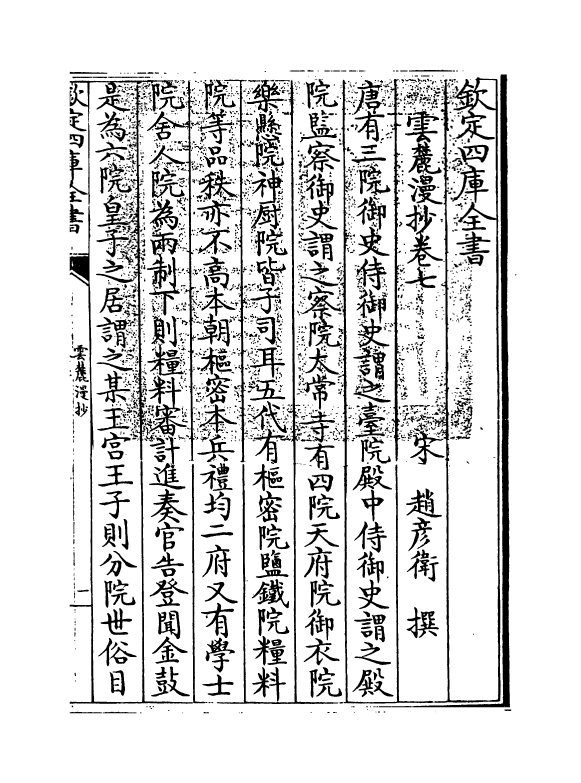 欽定四庫全書
雲麓漫抄卷七
宋 趙彦衛 撰
唐有三院御史侍御史謂之臺院殿中侍御史謂之殿
院監察御史謂之察院太常寺有四院天府院御衣院
樂縣院神厨院皆子司耳五代有樞密院鹽鐵院糧料
院等品秩亦不高本朝樞密本兵禮均二府又有學士
院舍人院為兩制下則糧料審計進奏官告登聞金鼓
是為六院皇子之居謂之某王宫王子則分院世俗目
欽定四庫全書
雲麓漫抄
一